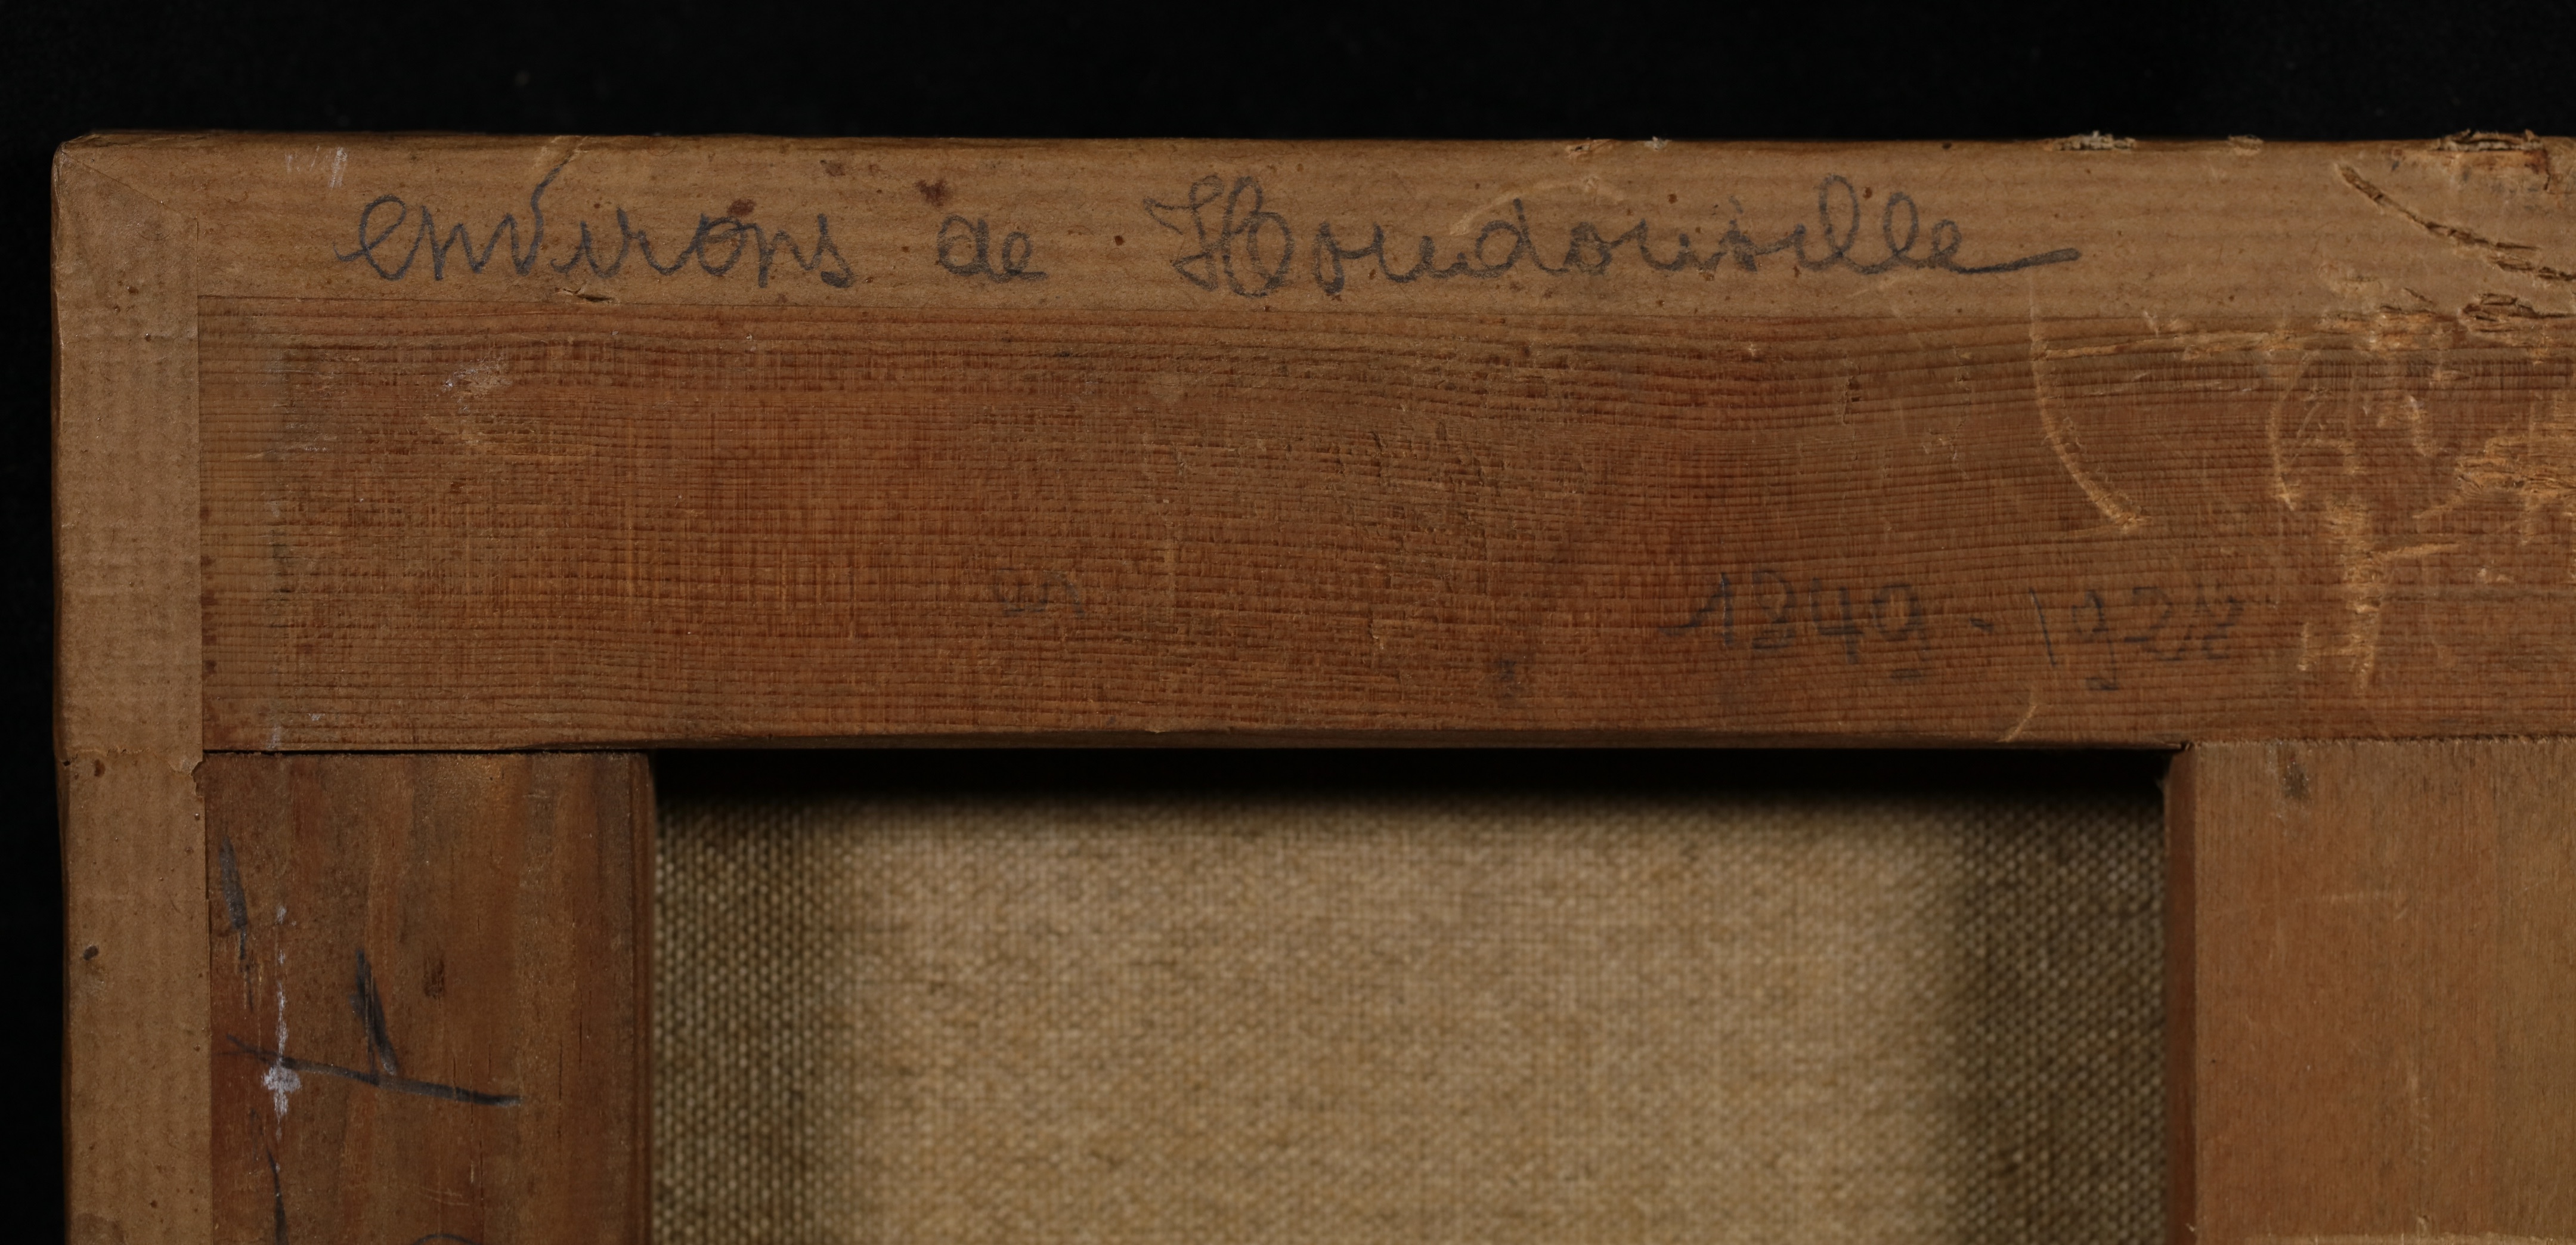 environs de Houdouville
1849-1928